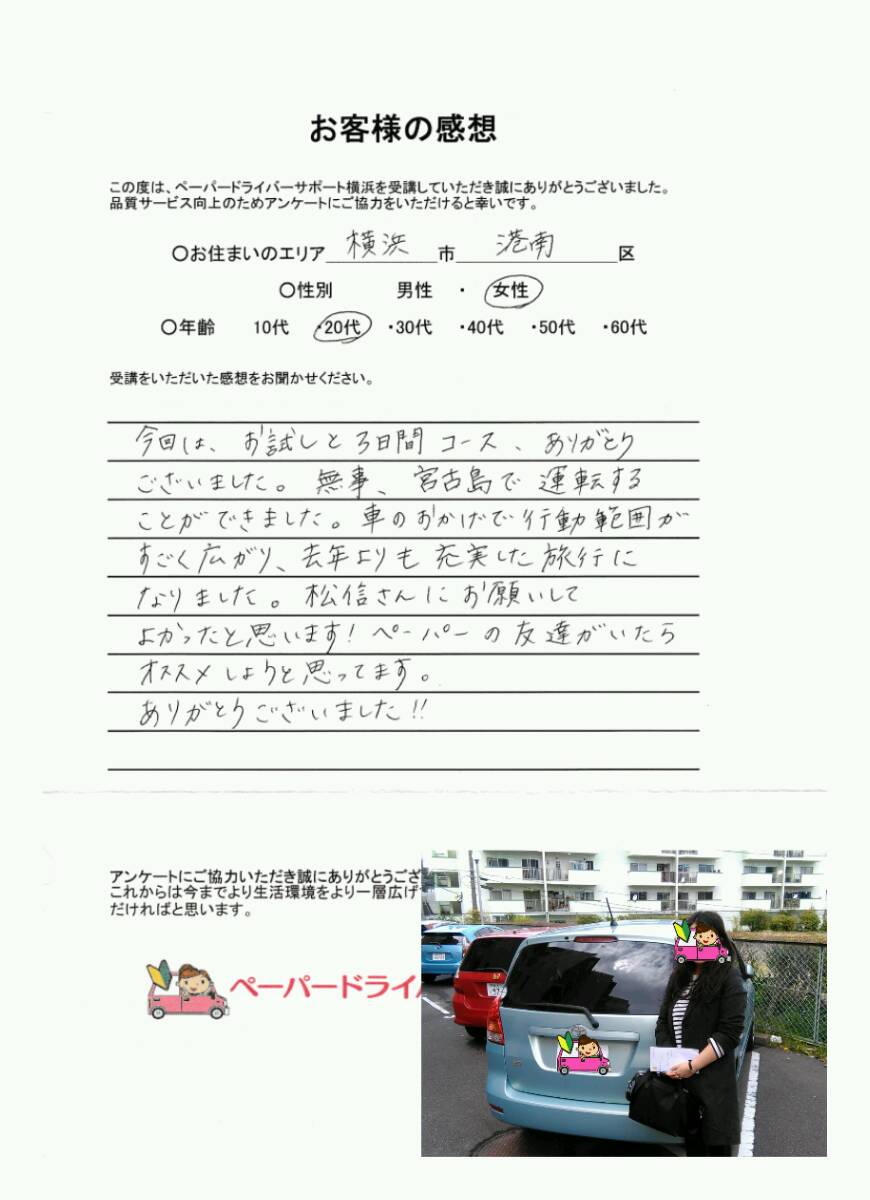 お客様の感想
この度は、ペーパードライバーサポート横浜を受講していただき誠にありがとうございました。
品質サービス向上のためアンケートにご協力をいただけると幸いです。
〇お住まいのエリア 横浜 市 港南 区
〇性別 男性 ・ 女性
〇年齢 10代 ・20代 ・30代 ・40代 ・50代 ・60代
受講をいただいた感想をお聞かせください。
今回は、お試しと3日間コース、ありがとう
ございました。無事、宮古島で運転する
ことができました。車のおかげで行動範囲が
すごく広がり、去年よりも充実した旅行に
なりました。松信さんにお願いして
よかったと思います!ペーパーの友達がいたら
オススメしようと思ってます。
ありがとうございました!!
アンケートにご協力いただき誠にありがとうござ
これからは今までより生活環境をより一層広げ
だければと思います。
ペーパードライ